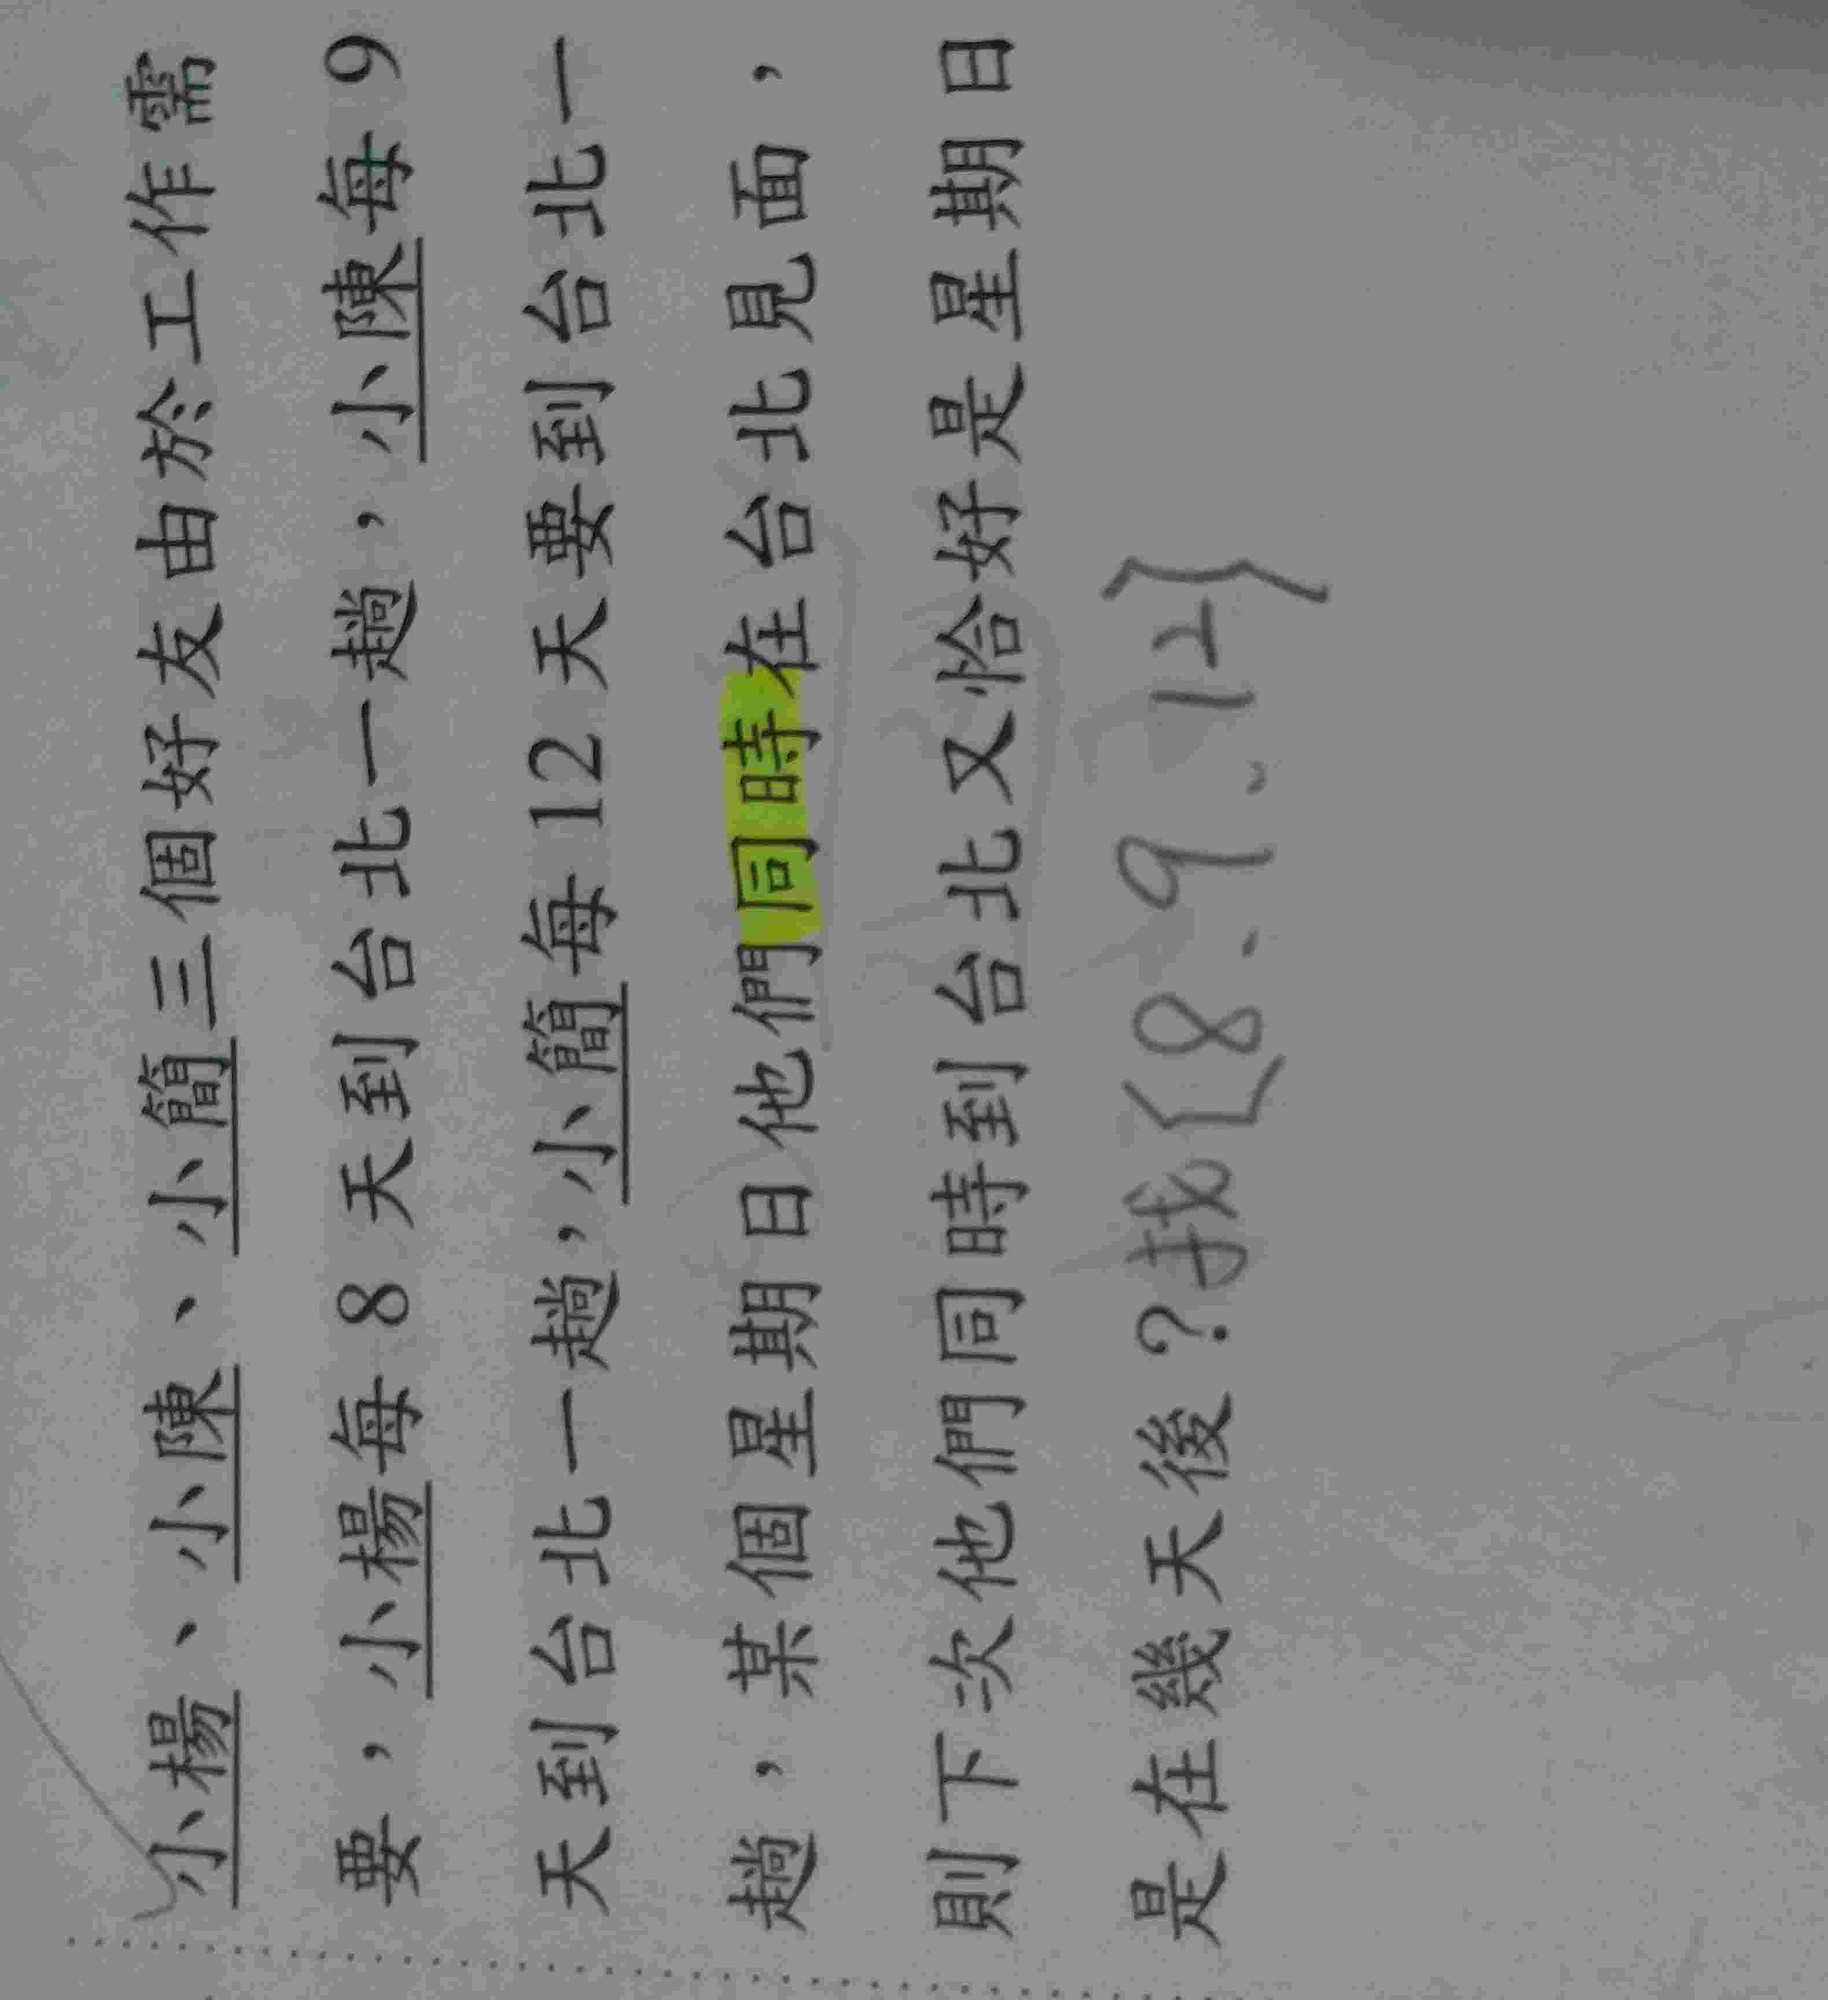 小楊、小陳、小簡三個好友由於工作需
要，小楊每 8 天到台北一趟，小陳每 9
天到台北一趟，小簡每 12 天要到台北一
趟，某個星期日他們同時在台北見面，
則下次他們同時到台北又恰好是星期日
是在幾天後？找[8、9、12]